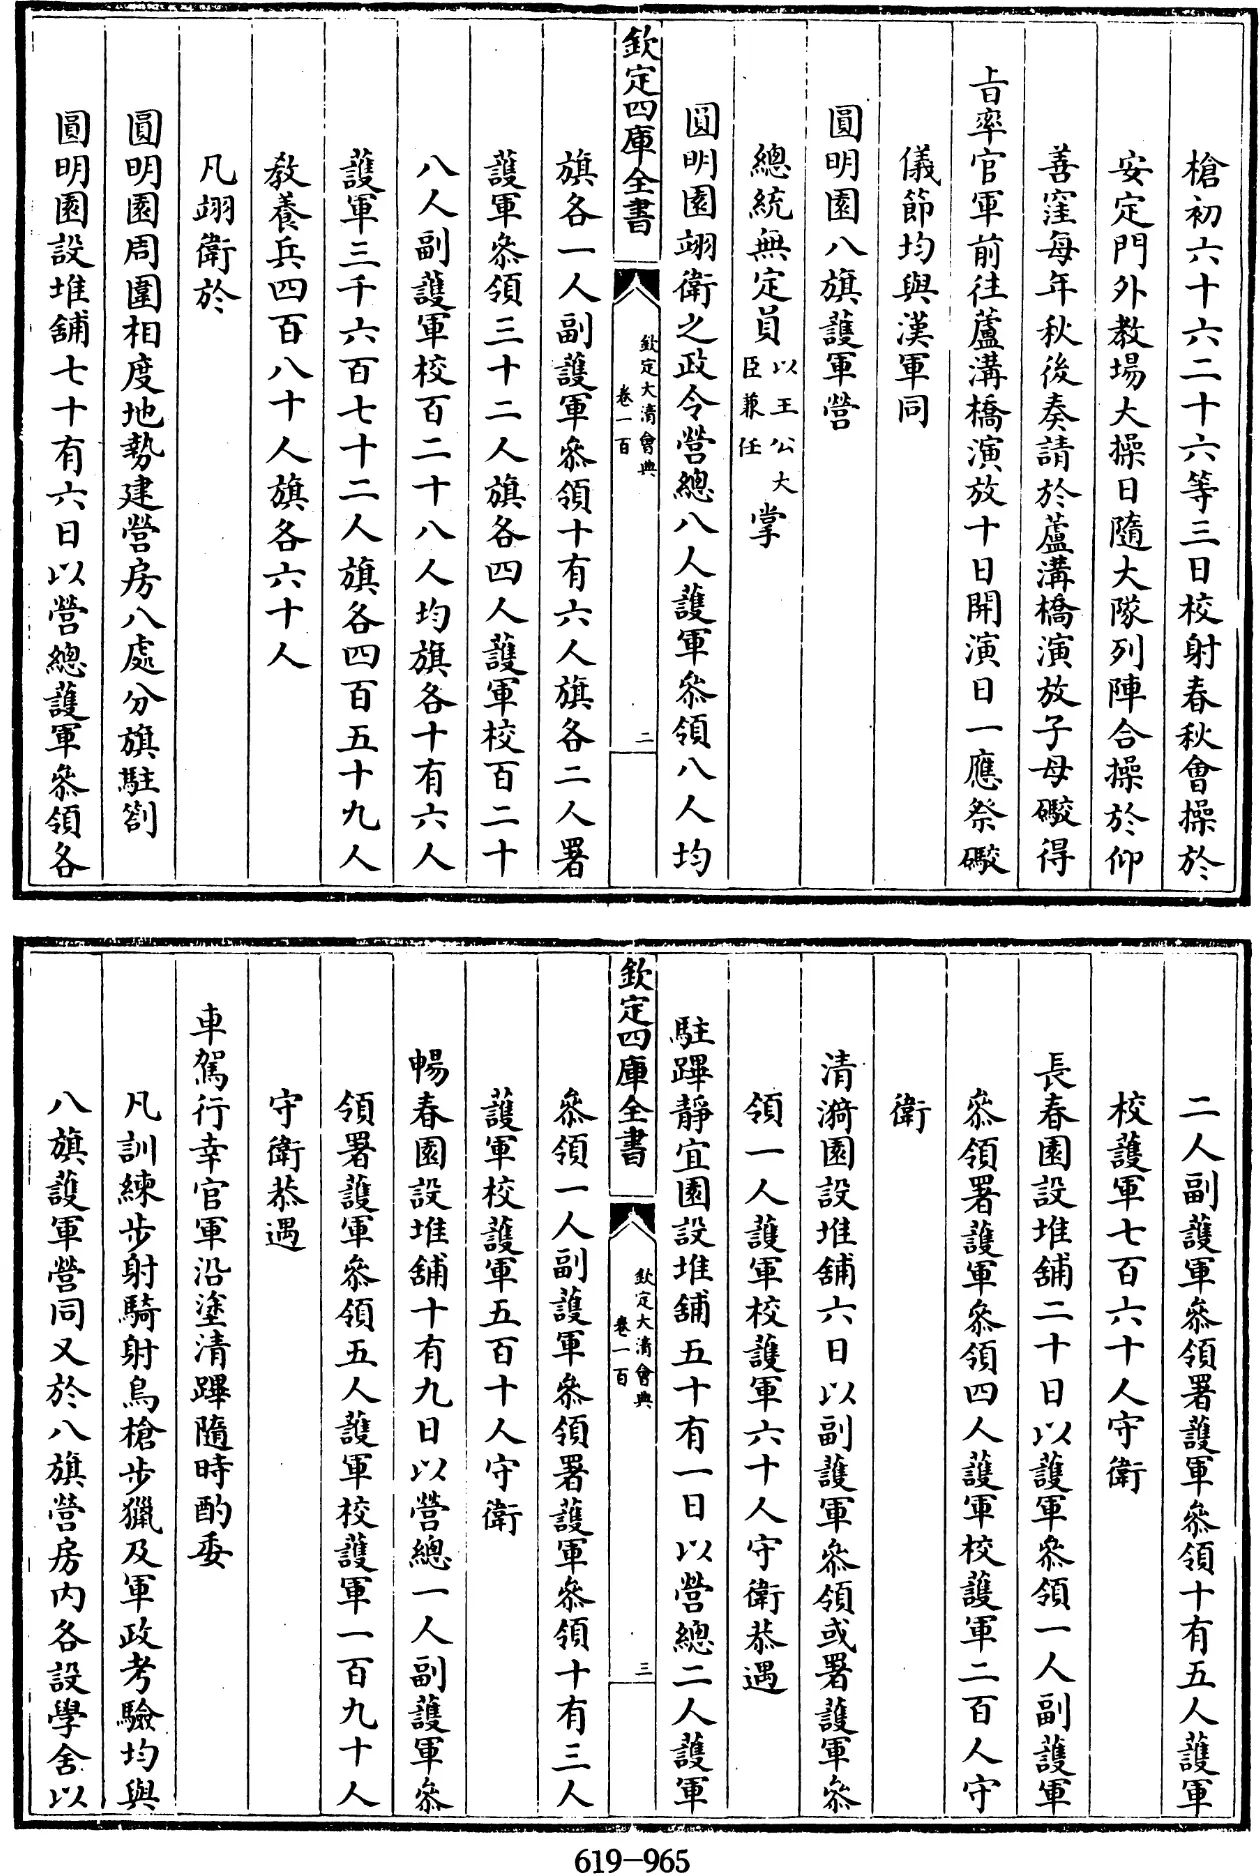 槍初六十六二十六等三日校射春秋會操於
安定門外教場大操日隨大隊列陣合操於仰
善窪每年秋後奏請於蘆溝橋演放子母礮得
旨率官軍前往蘆溝橋演放十日開演日一應祭礮
儀節均與漢軍同
圓明園八旗護軍營
總統無定員以王公大臣兼任掌
圓明園翊衛之政令營總八人護軍叅領八人均
欽定四庫全書
欽定大清會典
卷一百
二
旗各一人副護軍叅領十有六人旗各二人署
護軍叅領三十二人旗各四人護軍校百二十
八人副護軍校百二十八人均旗各十有六人
護軍三千六百七十二人旗各四百五十九人
教養兵四百八十人旗各六十人
凡翊衛於
圓明園周圍相度地勢建營房八處分旗駐劄
圓明園設堆舖七十有六日以營總護軍叅領各
二人副護軍叅領署護軍叅領十有五人護軍
校護軍七百六十人守衛
長春園設堆舖二十日以護軍叅領一人副護軍
叅領署護軍叅領四人護軍校護軍二百人守
衛
清漪園設堆舖六日以副護軍叅領或署護軍叅
領一人護軍校護軍六十人守衛恭遇
駐蹕靜宜園設堆舖五十有一日以營總二人護軍
欽定四庫全書
欽定大清會典
卷一百
三
叅領一人副護軍叅領署護軍叅領十有三人
護軍校護軍五百十人守衛
暢春園設堆舖十有九日以營總一人副護軍叅
領署護軍叅領五人護軍校護軍一百九十人
守衛恭遇
車駕行幸官軍沿塗清蹕隨時酌委
凡訓練步射騎射鳥槍步獵及軍政考驗均與
八旗護軍營同又於八旗營房內各設學舍以
619-965